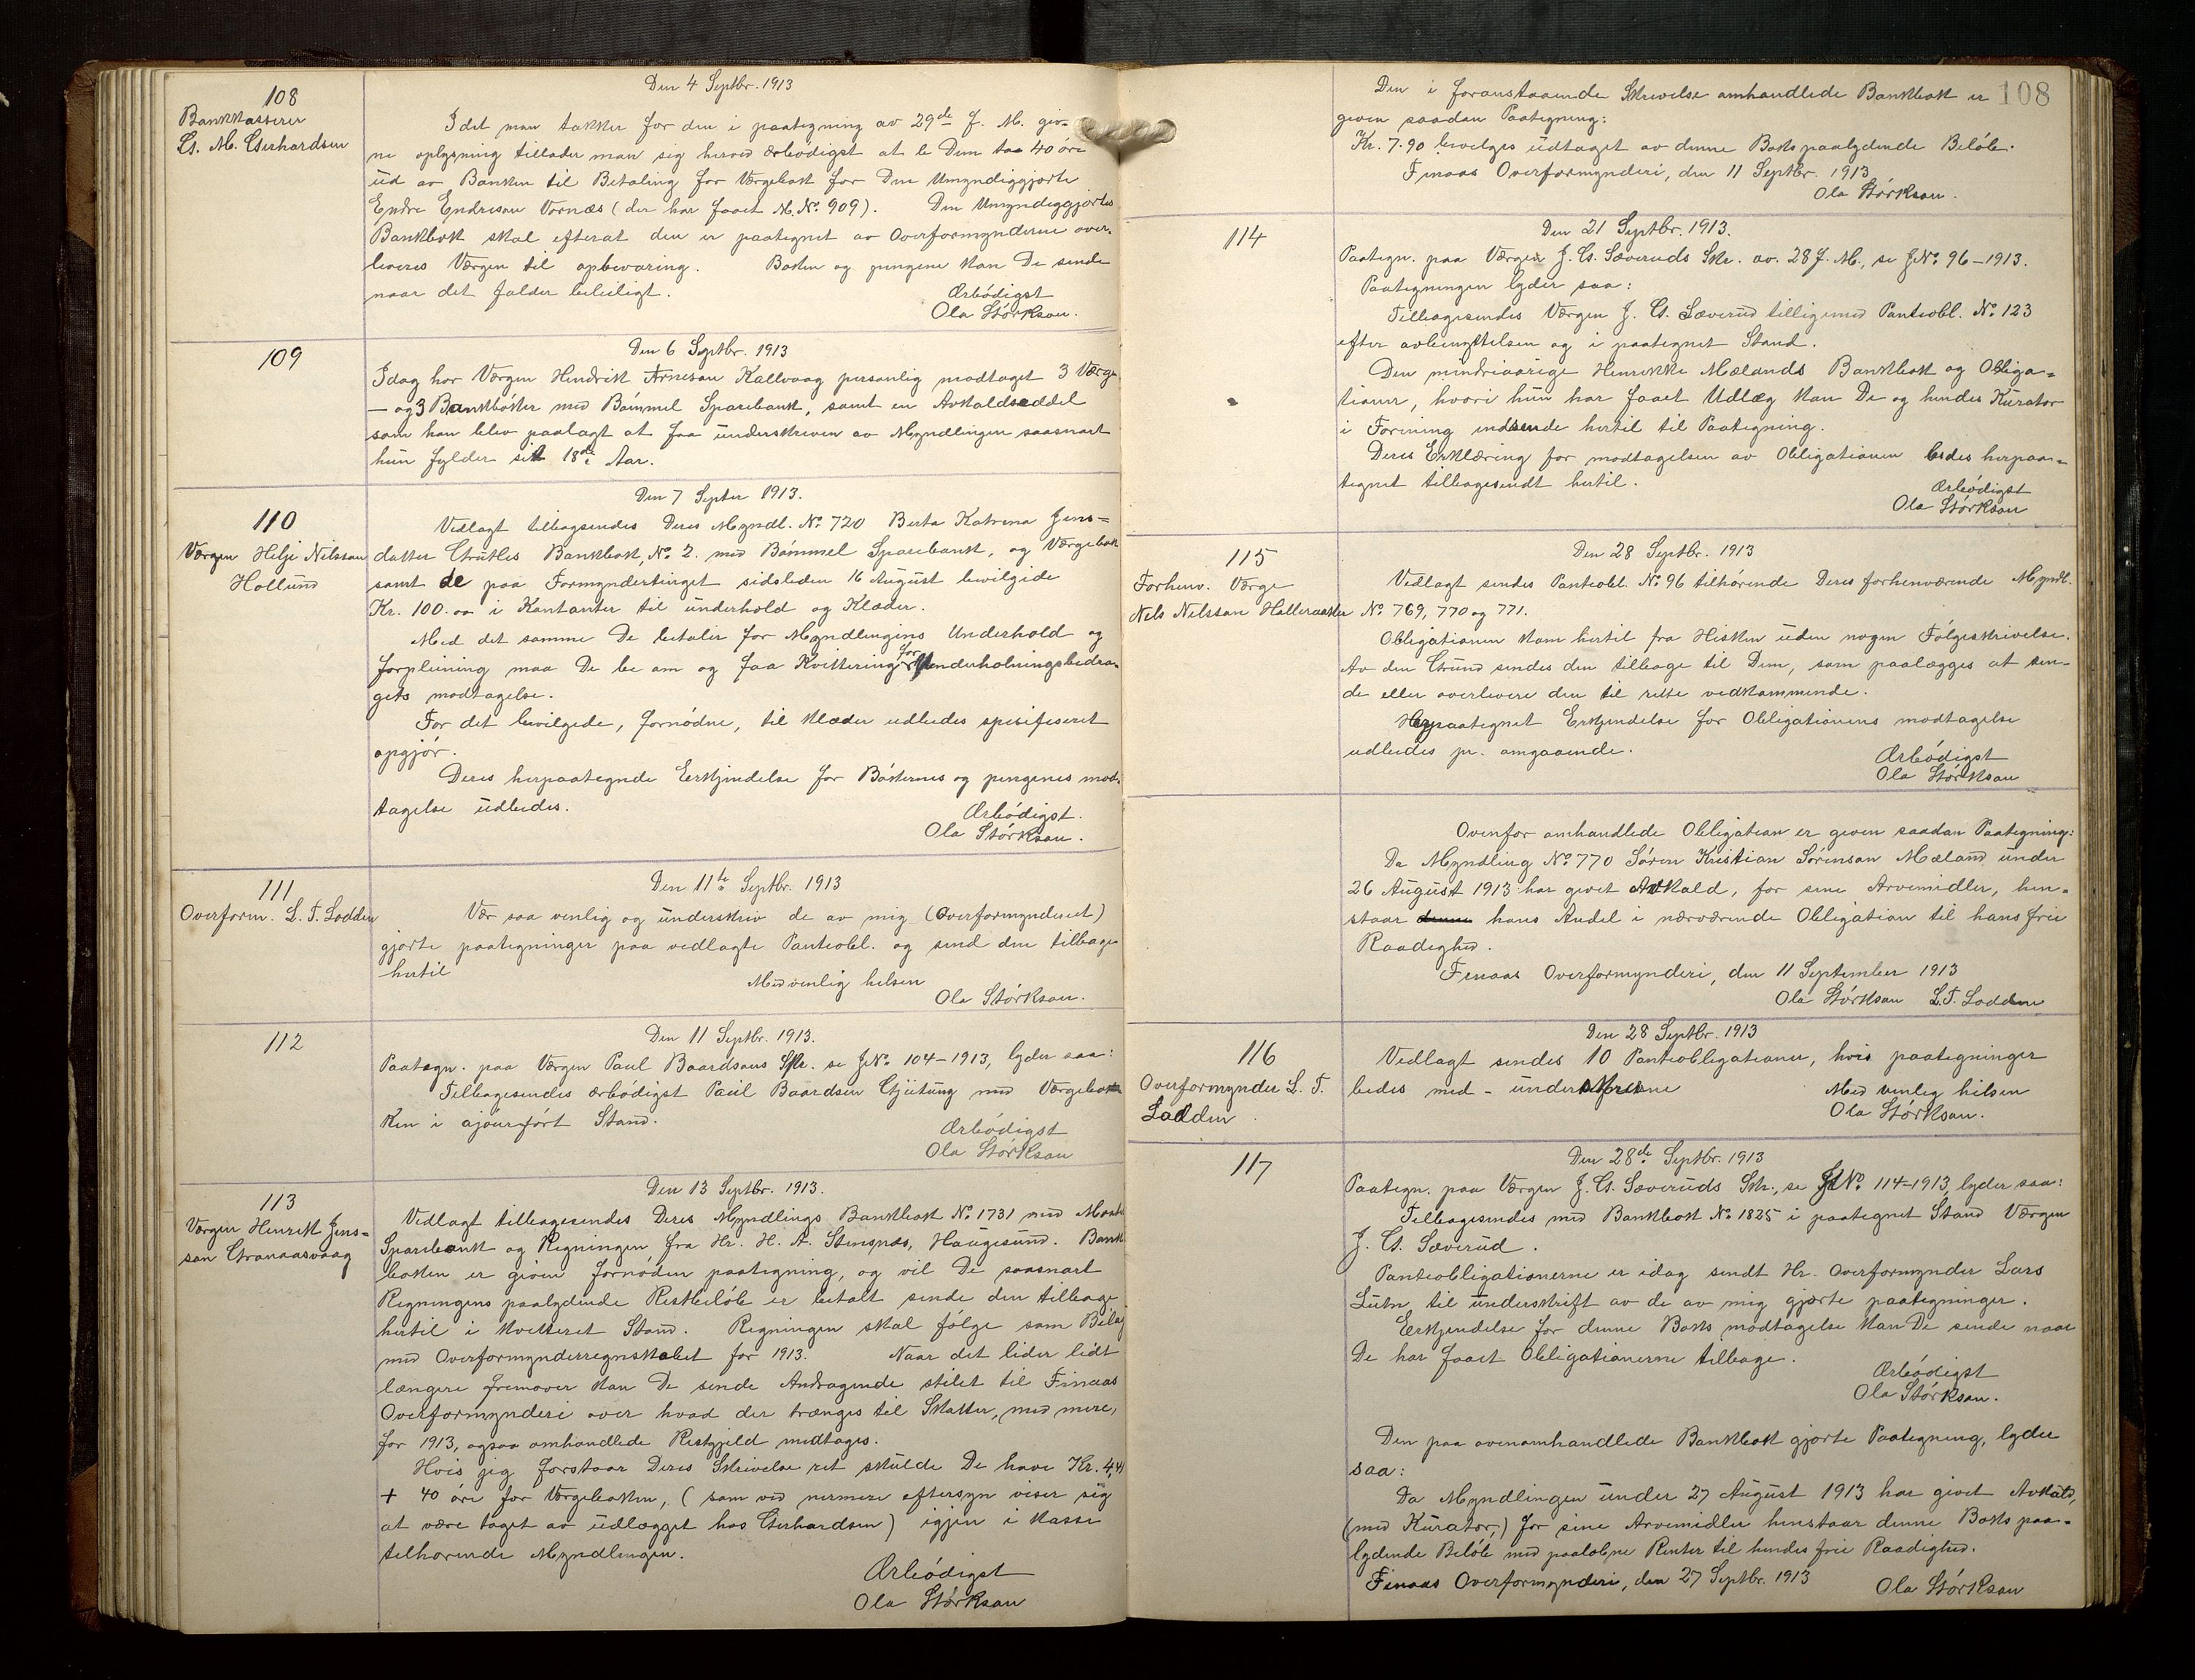 108
Bankkasserer
G. M. Gerhardsen
Den 4 Septbr. 1913
Idet man takker for den i paategning av 29de f. M. giv-
ne oplysning tillader man sig herved ærbödigst at be Dem taa 40 öre
ud av Banken til Betaling for Værgebok for Den Umyndiggjorte
Endre Endresan Vornæs (der har faaet M. No. 909). Den Umyndiggjortes
Bankbok skal efterat den er paategnet av Overformynderne over-
leveres Værgen til opbevaring. Boken og pengene kan De sende
naar det falder beleiligt.
Ærbödigst
Ola Störksan.
109
Den 6 Septbr. 1913
Idag har Værgen Hendrik Arnesan Kallvaag personlig modtaget 3 Værge
— og 3 Bankböker med Bömmel Sparebank, samt en Avkaldseddel
som han blev paalagt at faa underskreven av Myndlingen saasnart
hun fylder sit 18de Aar.
110
Værgen Helje Nilssan
Hollund
Den 7 Septer 1913.
Vedlagt tilbagsendes Deres Myndl. No. 720 Berta Katrina Jens-
datter Grutles Bankbok, No. 2. med Bömmel Sparebank, og Værgebok
samt de paa Formyndertinget sidsleden 16 August bevilgede
Kr. 100.00 i Kontanter til underhold og Klæder.
Med det samme De betaler for Myndlingens Underhold og
forpleining maa De be om og faa Kvittering for Underholningsbedra-
gets modtagelse.
For det bevilgede, fornödne, til klæder udbedes spesifiseret
opgjör.
Deres herpaategnde Erkjendelse for Bökernes og pengenes mod-
tagelse udbedes.
Ærbödigst.
Ola Störksan.
111
Overform. L. T. Lodden
Den 11te Septbr. 1913
Vær saa venlig og underskriv de av mig (Overformynderet)
gjorte paategninger paa vedlagte Panteobl. og send den tilbage
hertil
Med venlig helsen
Ola Störksan.
112
Den 11 Septbr. 1913.
Paategn. paa Værgen Paul Baardsans Skr. se J.No. 104-1913, lyder saa:
Tilbagesendes ærbödigst Paul Baardsen Gjutung med Værgebo
ken i ajourfört Stand.
Ærbödigst
Ola Störksan
113
Værgen Henrik Jens-
san Granaasvaag
Den 13 Septbr. 1913.
Vedlagt tilbagesendes Deres Myndlings Bankbok No. 1731 med
Sparebank og Regningen fra Hr. H. A. Stensnæs, Haugesund. Bank
boken er given fornöden paategning, og vil De saasnart
Regningens paalydende Restbelöb er betalt sende den tilbage
hertil i kvitteret Stand. Regningen skal fölge som Bilag
med Overformynderregnskabet for 1913. Naar det lider lidt
længere fremover kan De sende Andragende stilet til Finaas
Overformynderi over hvad der trænges til Skatter, med mere,
for 1913, ogsaa omhandlede Restgjeld medtages.
Hvis jeg forstaar Deres Skrivelse ret skulde De have Kr. 4,41
+ 40 öre for Værgeboken, (som ved nermere eftersyn viser sig
at være taget av udlægget hos Gerhardsen) igjen i kasse
tilhorende Myndlingen.
Ærbödigst
Ola Störksan
108
Den i foranstaaende Skrivelse omhandlede Bankbok er
given saadan Paategning:
Kr. 7.90 bevilges udtaget av denne Boks paalydende Belöb.
Finaas Overformynderi, den 11 Septbr. 1913
Ola Störksan.
114
Den 21 Septbr. 1913.
Paategn. paa Værgen J. G. Sæveruds Skr. av. 28 f. M., se J.No. 96-1913.
Paategningen lyder saa:
Tilbagesendes Værgen J. G. Sæverud tilligemed Panteobl. No. 123
efter avbenyttelsen og i paategnet Stand.
Den mindreaarige Henrikke Mælands Bankbok og Obliga-
tioner, hvori hun har faaet Udlæg kan De og hendes Kurator
i Forening indsende hertil til Paategning.
Deres Erklæring for modtagelsen av Obligationen bedes herpaa-
tegnet tilbagesendt hertil.
Ærbödigst
Ola Störksan
115
Forhenv. Værge
Nils Nilssan Halleraaker
Den 28 Septbr. 1913
Vedlagt sendes Panteobl. No. 96 tilhörende Deres forhenværende Myndl.
No. 769, 770 og 771.
Obligationen kom hertil fra Hisken uden nogen Fölgeskrivelse.
Av den Grund sendes den tilbage til Dem, som paalægges at sen-
de eller overlevere den til rette vedkommende.
Herpaategnet Erkjendelse for Obligationens modtagelse
udbedes pr. omgaaende.
Ærbödigst
Ola Störksan
Ovenfor omhandlede Obligation er given saadan Paategning:
Da Myndling No. 770 Sören Kristian Sörensan Mæland under
26 August 1913 har givet Avkald, for sine Arvemidler, hen-
staar denne hans Andel i nærværende Obligation til hans frie
Raadighed.
Finaas Overformynderi, den 11 September 1913
Ola Störksan L. T. Lodden
116
Overformynder L. T.
Lodden
Den 28 Septbr. 1913
Vedlagt sendes 10 Panteobligationer, hvis paategninger
bedes med - underskrevne
Med venlig hilsen
Ola Störksan.
117
Den 28de Septbr. 1913
Paategn. paa Værgen J. G. Sæveruds Skr., se J.No. 114-1913, lyder saa:
Tilbagesendes med Bankbok No. 1825 i paategnet Stand Værgen
J. G. Sæverud.
Panteobligationerne er idag sendt Hr. Overformynder Lars
Lutn til underskrift av de av mig gjorte paategninger.
Erkjendelse for denne Boks modtagelse kan De sende naar
De har faaet Obligationerne tilbage.
Ærbödigst
Ola Störksan.
Den paa ovenomhandlede Bankbok gjorte Paategning, lyder
saa:
Da Myndlingen under 27 August 1913 har givet Avkald,
(med Kurator,) for sine Arvemidler henstaar denne Boks paa-
lydende Belöb med paalöbne Renter til hendes frie Raadighed.
Finaas Overformynderi, den 27 Septbr. 1913
Ola Störksan